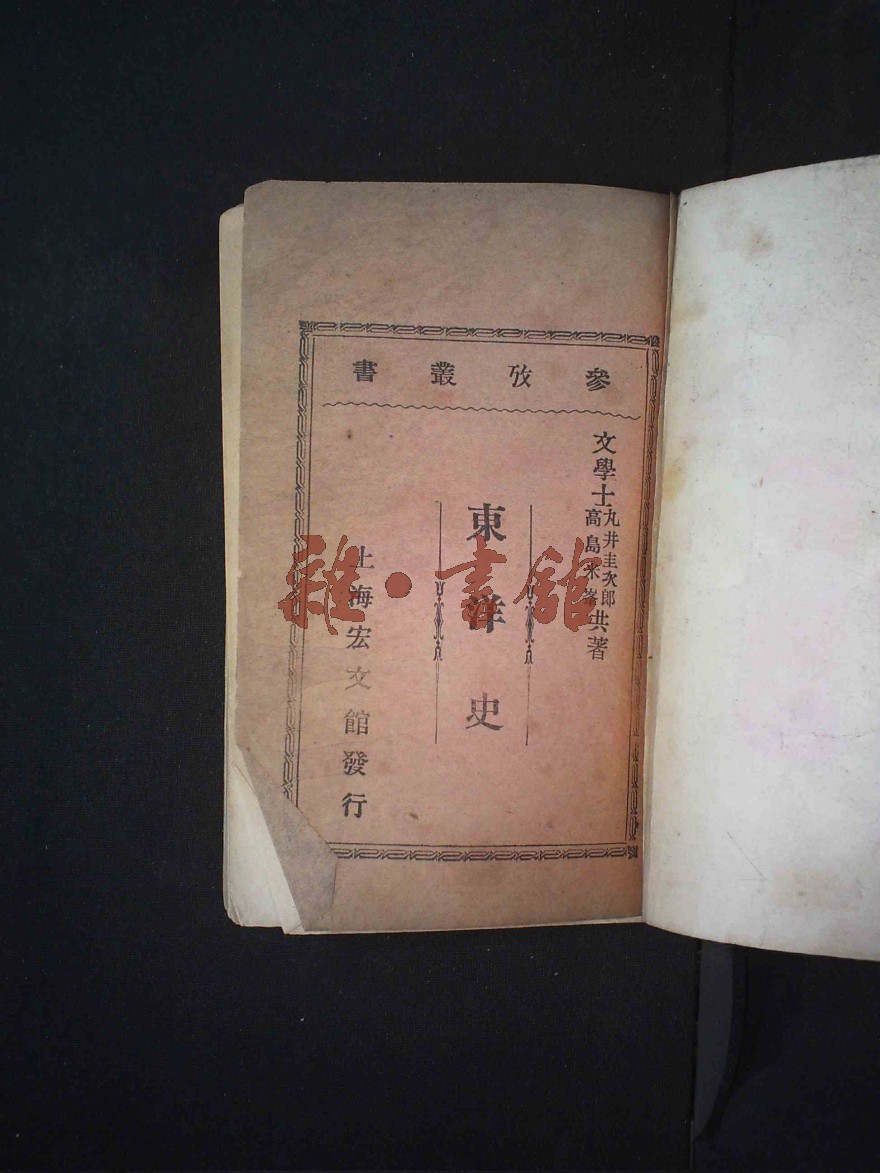 參攷叢書
文學士
丸井圭次郎
高島米峯
共著
東洋史
上海宏文館發行
雜·書館